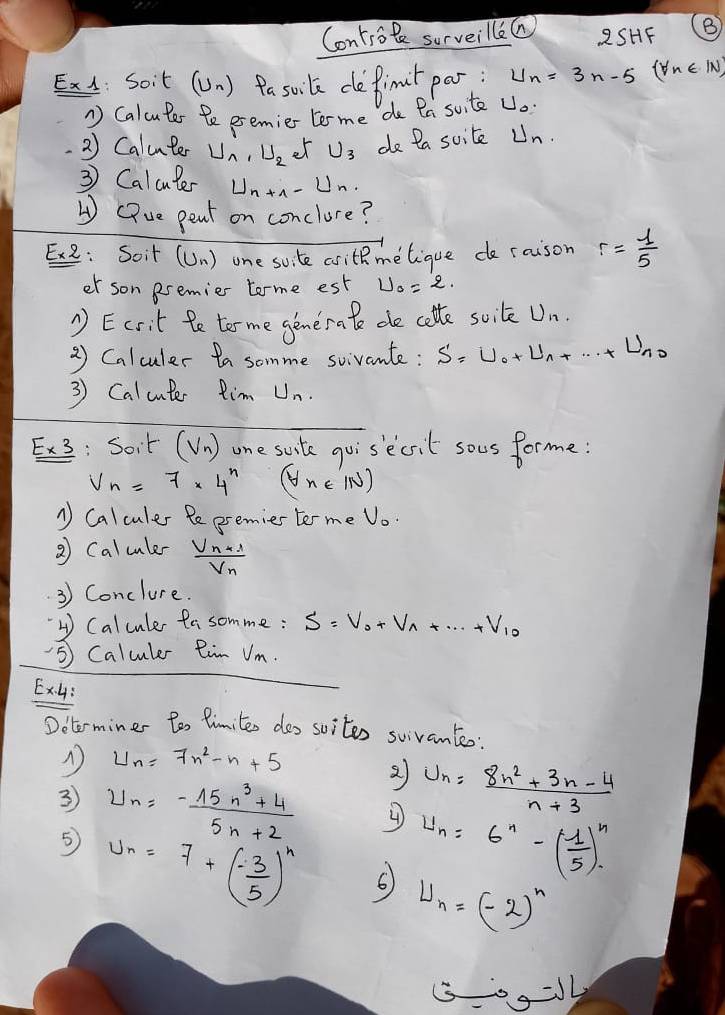 Contrôle surveillé ① 2SHF Ⓑ
Ex1: Soit (Un) la suite définit par : Un = 3n-5 (∀n∈IN)
1) Calculer le premier terme de la suite U₀.
2) Calculer U₁, U₂ et U₃ de la suite Un.
3) Calculer Un+1 - Un.
4) Que peut on conclure?
Ex2: Soit (Un) une suite arithmétique de raison r = 1/5
et son premier terme est U₀ = 2.
1) Ecrit le terme générale de cette suite Un.
2) Calculer la somme suivante : S = U₀ + U₁ + ... + U₁₀
3) Calculer lim Un.
Ex3 : Soit (Vn) une suite qui s'écrit sous forme:
Vn = 7 × 4ⁿ (∀n∈IN)
1) Calculer le premier terme V₀.
2) Calculer Vn+1/Vn
3) Conclure.
4) Calculer la somme : S = V₀ + V₁ + ... + V₁₀
5) Calculer lim Vn.
Ex.4:
Déterminer les limites des suites suivantes:
1) Un = 7n² - n + 5
2) Un = (8n² + 3n - 4)/(n + 3)
3) Un = (-15n³ + 4)/(5n + 2)
4) Un = 6ⁿ - (1/5)ⁿ.
5) Un = 7 + (-3/5)ⁿ
6) Un = (-2)ⁿ
بالتوفيق